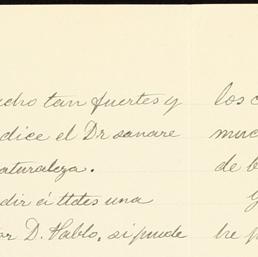 ucho tan fuertes y
dice el Dr sanare
aturaleza.
dir á Udes una
or D. Pablo, si puede
los c
muc
de b
y
he p